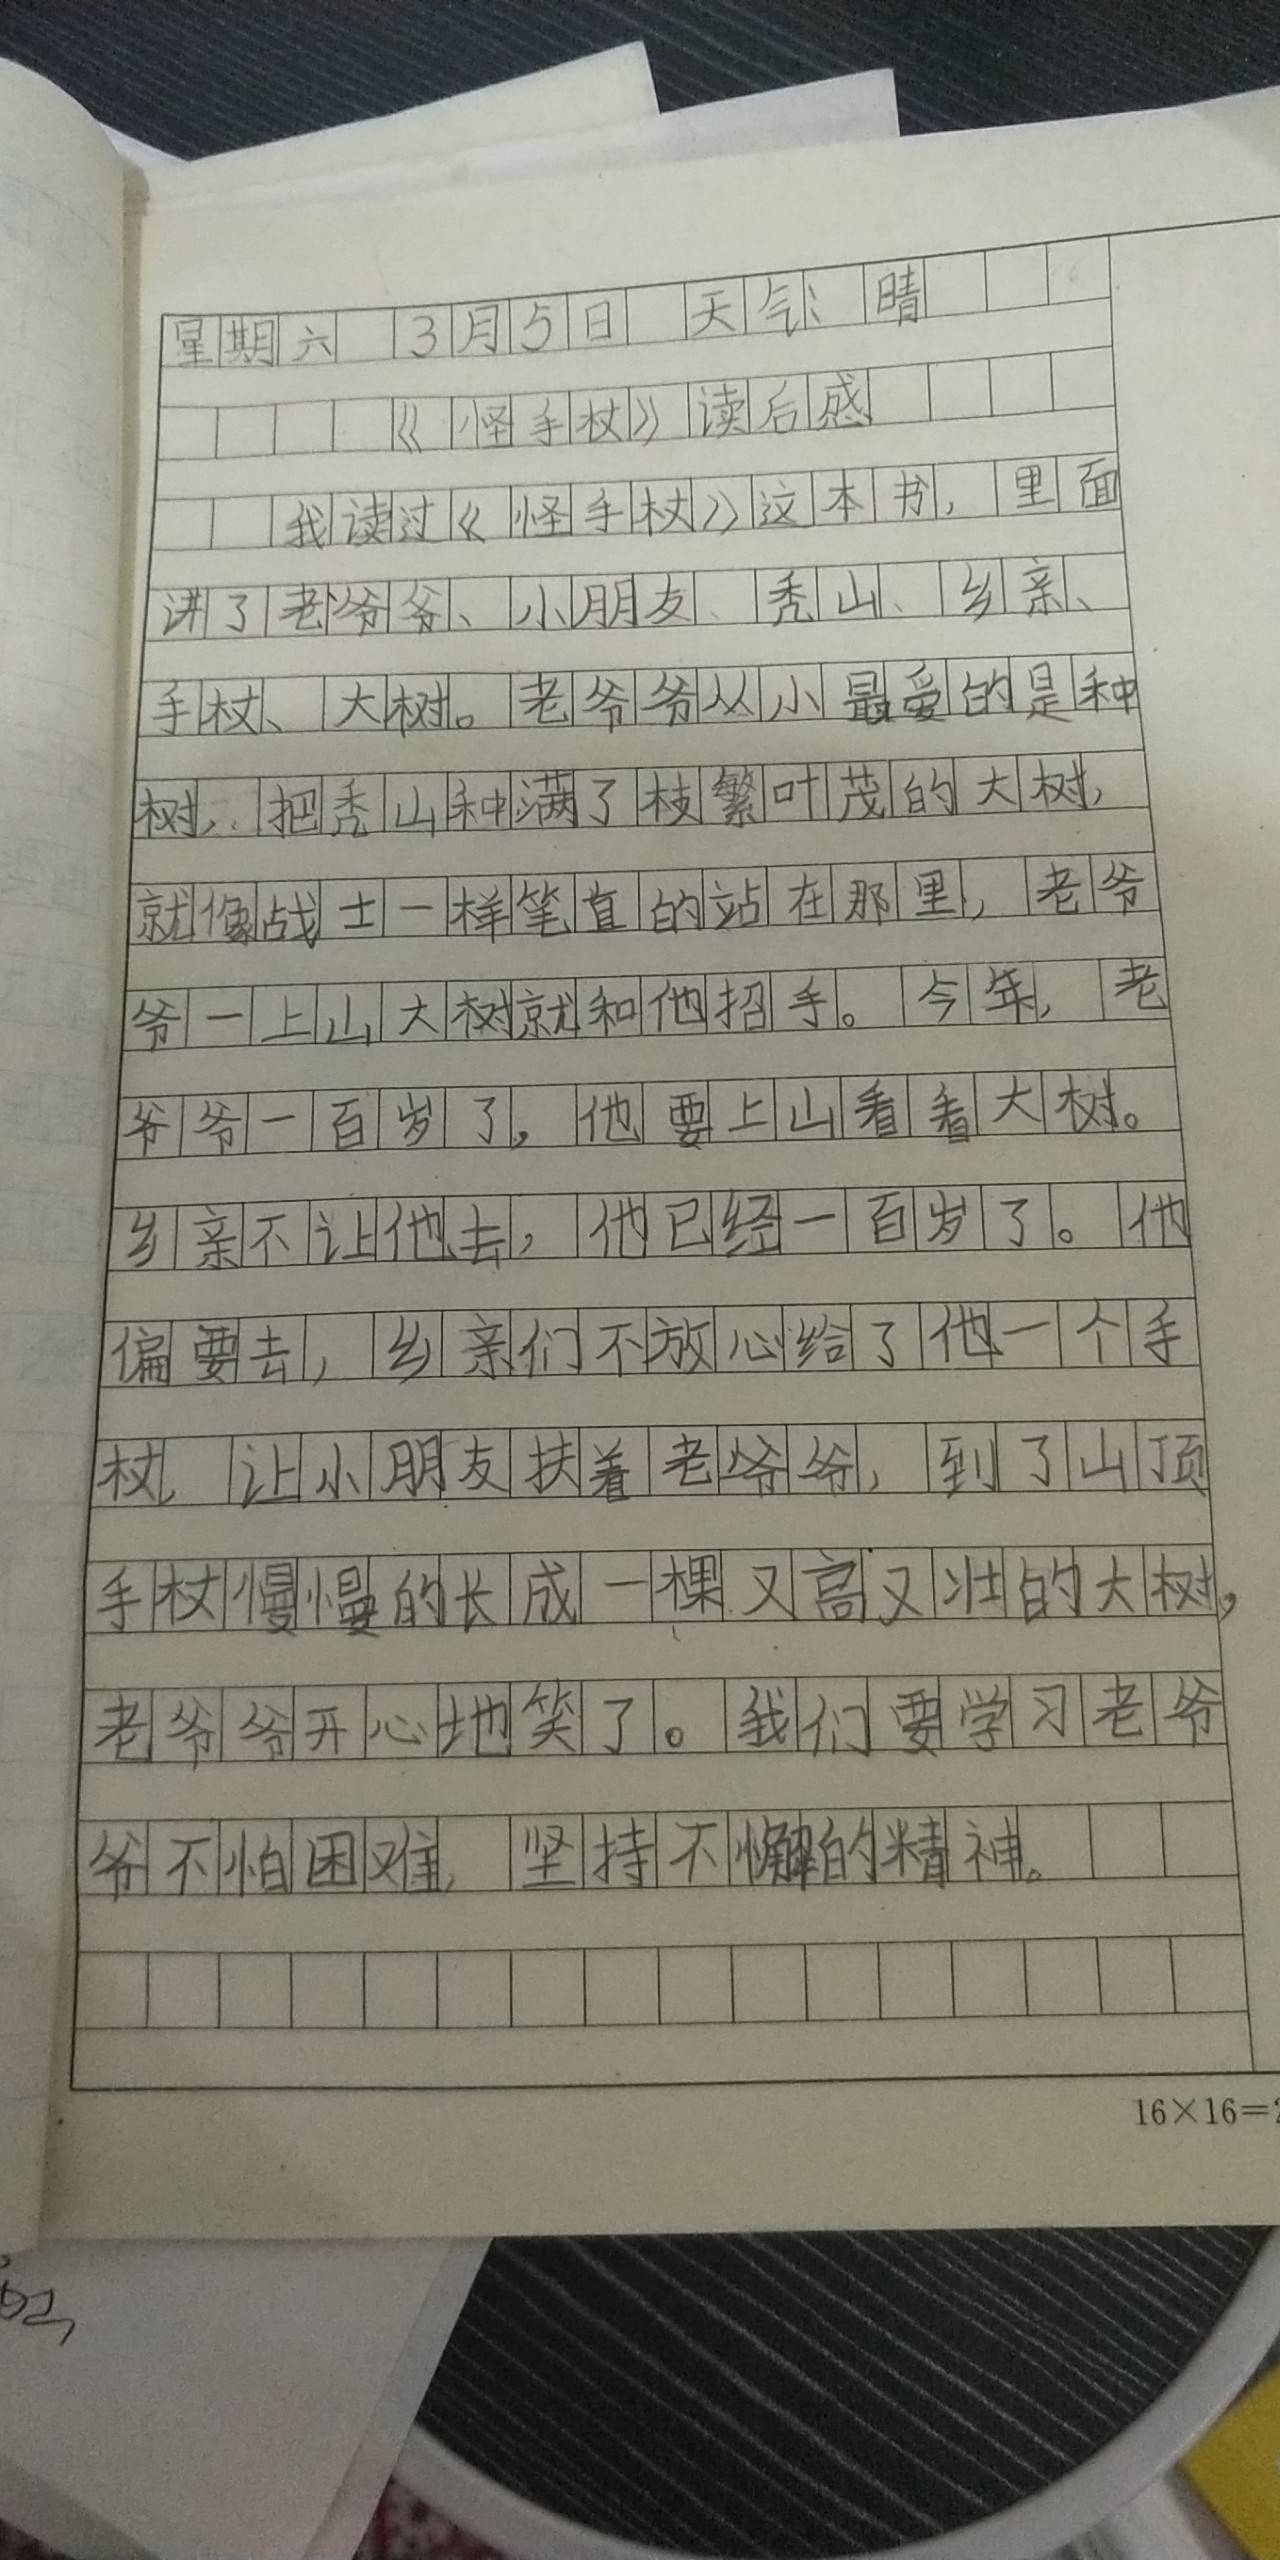 星期六 3月5日 天气：晴
《怪手杖》读后感
我读过《怪手杖》这本书，里面
讲了老爷爷、小朋友、秃山、乡亲、
手杖、大树。老爷爷从小最爱的是种
树，把秃山种满了枝繁叶茂的大树，
就像战士一样笔直的站在那里，老爷
爷一上山大树就和他招手。今年，老
爷爷一百岁了，他要上山看看大树。
乡亲不让他去，他已经一百岁了。他
偏要去，乡亲们不放心给了他一个手
杖，让小朋友扶着老爷爷，到了山顶
手杖慢慢的长成一棵又高又壮的大树，
老爷爷开心地笑了。我们要学习老爷
爷不怕困难，坚持不懈的精神。
16×16=